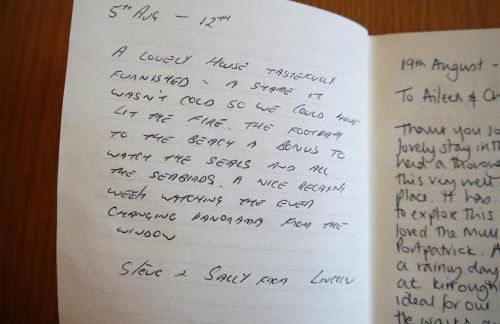 5TH AUG — 12TH
A LOVELY HOUSE TASTEFULLY
FURNISHED - A SHAME IT
WASN'T COLD SO WE COULD HAVE
LIT THE FIRE. THE FOOTPATH
TO THE BEACH A BONUS TO
WATCH THE SEALS AND ALL
THE SEABIRDS. A NICE RELAXING
WEEK WATCHING THE EVER
CHANGING PANORAMA FROM THE
WINDOW
STEVE & SALLY FROM LINCOLN
19th August -
To Aileen & Ch
Thank you so
lovely stay in th
had a thorou
this very well
place. It has
to explore this
loved the Mull
Portpatrick. A
a rainy day
at
ideal for our
the walks a